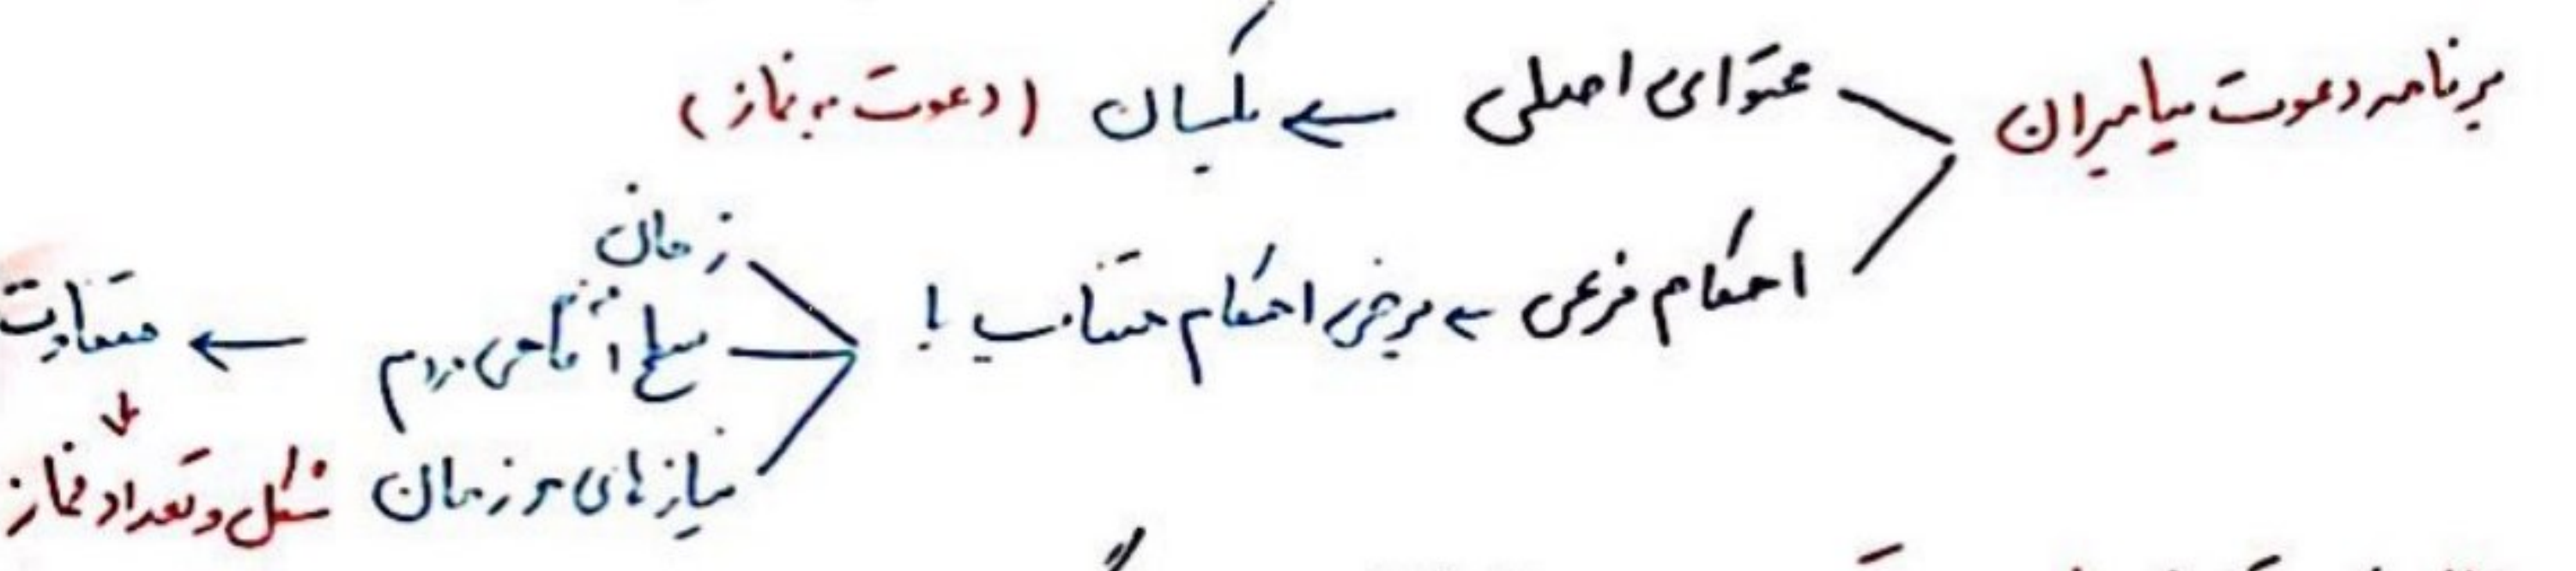 برنامه دعوت پیامبران
محتوای اصلی ← یکسان (دعوت به نماز)
احکام فرعی ← برخی احکام متناسب با
زمان
سطح آگاهی مردم ← متفاوت
نیازهای هر زمان
↓
شکل و تعداد نماز